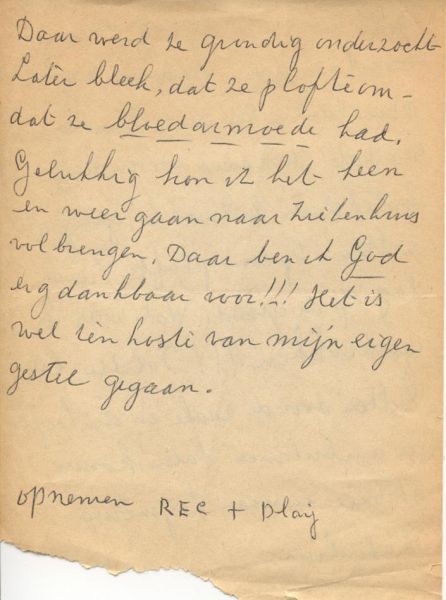 Daar werd ze grondig onderzocht
Later bleek, dat ze plofte om -
dat ze bloedarmoede had.
Gelukkig kon ik het heen
en weer gaan naar ziekenhuis
volbrengen. Daar ben ik God
erg dankbaar voor!!! Het is
wel ten koste van mijn eigen
gestel gegaan.
opnemen REC + Play